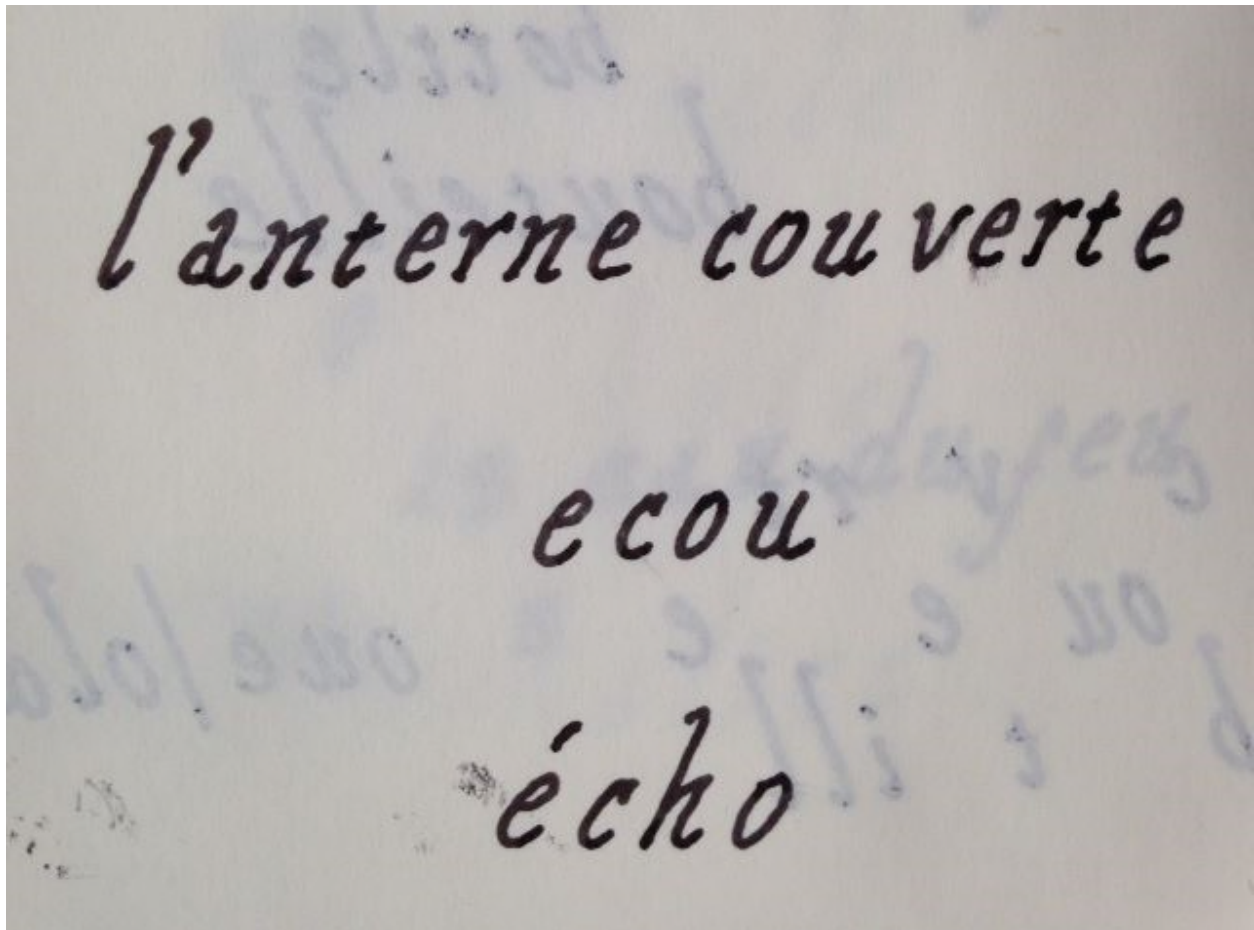 l'anterne couverte
ecou
écho